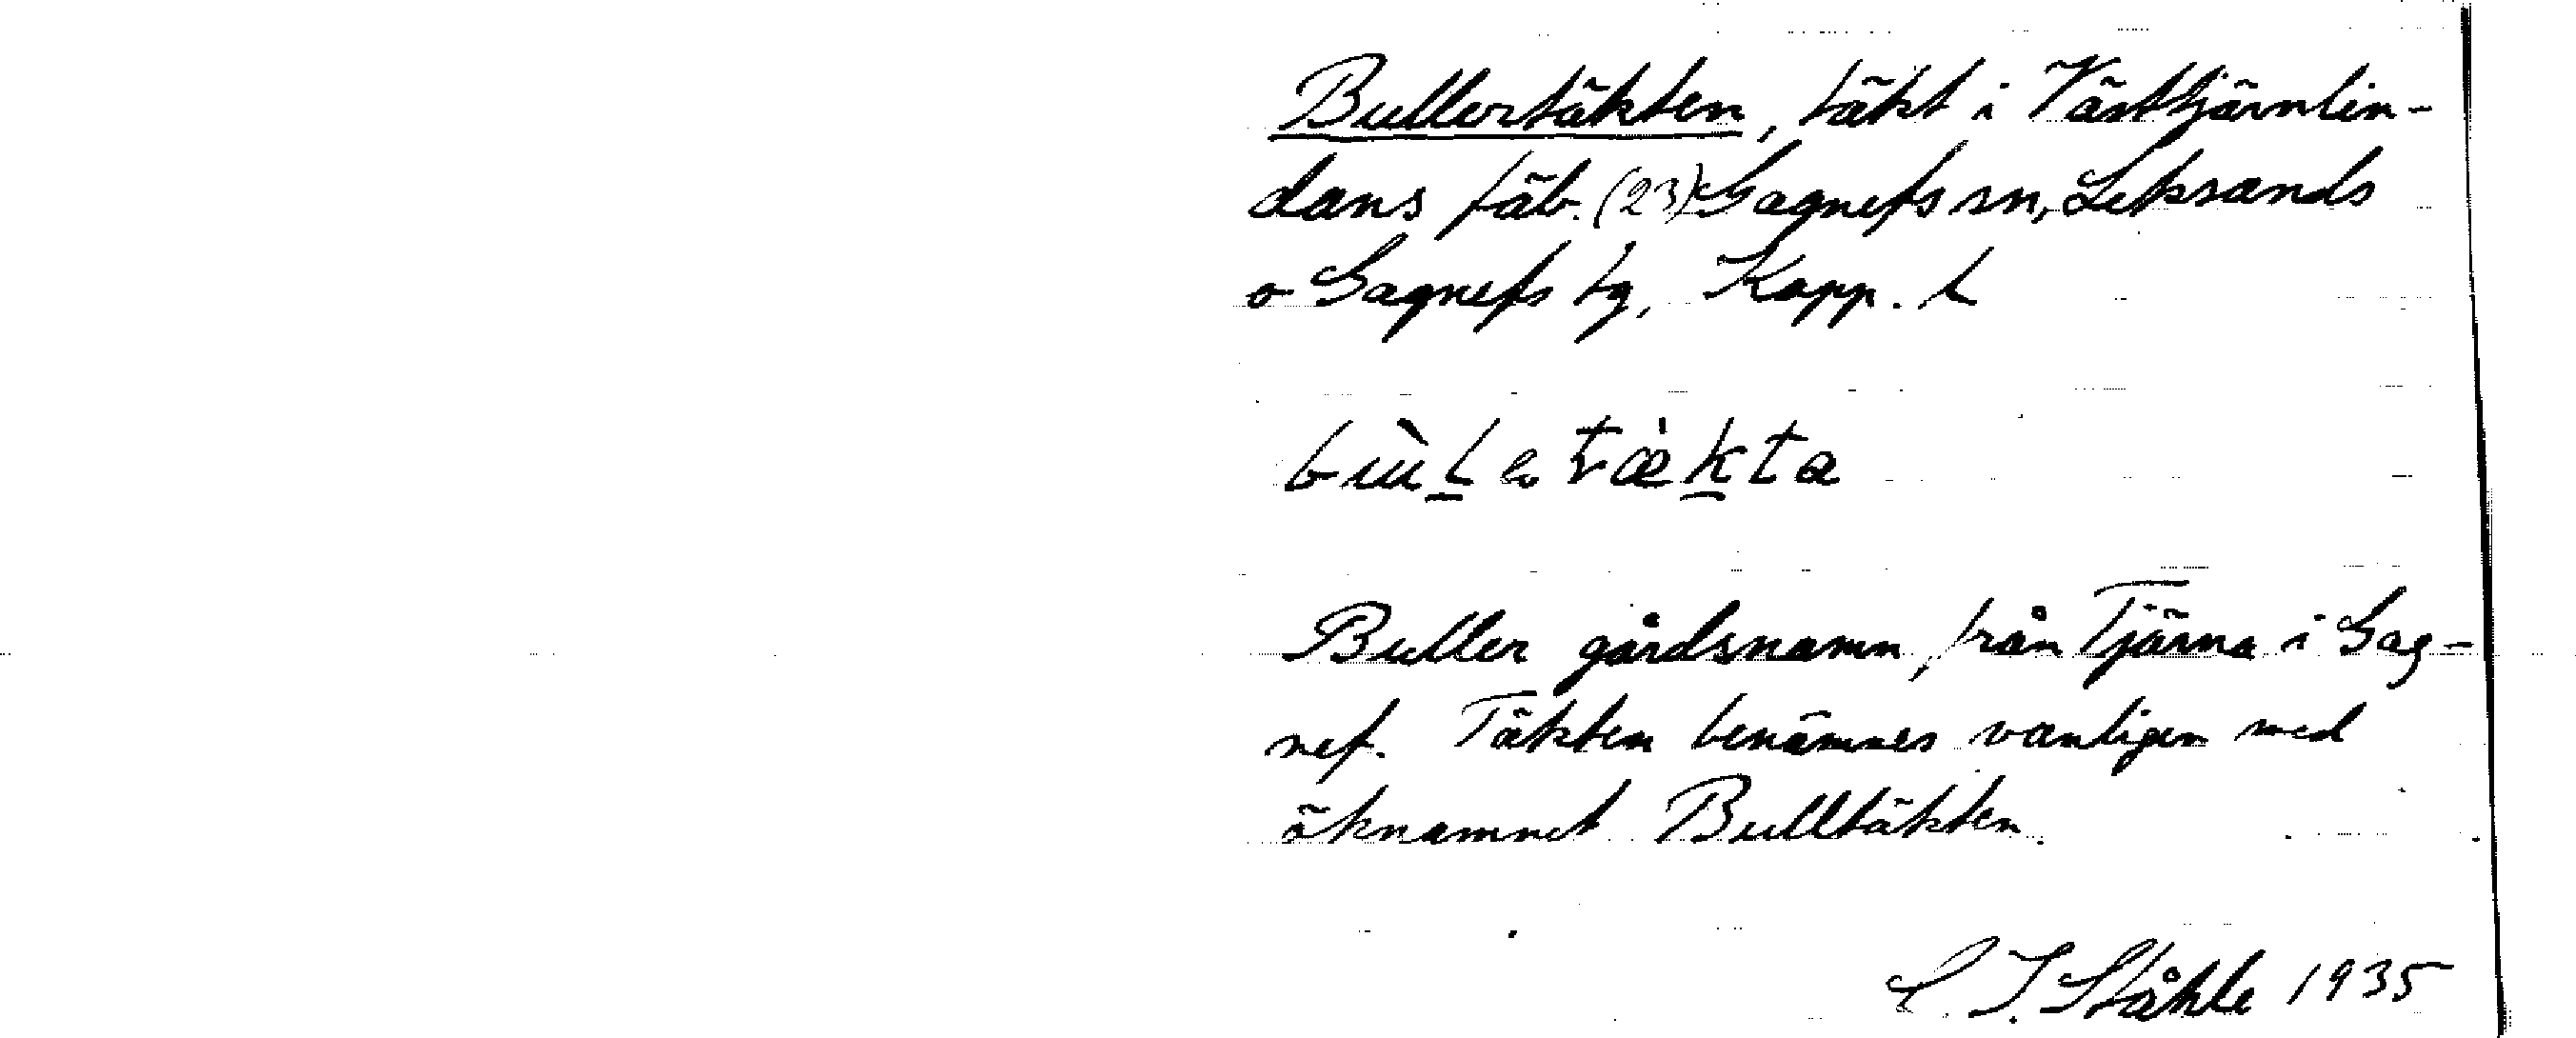 Bullertäkten, täkt i Västtjärnlin-
dans fäb. (23) Gagnefs sn, Leksands
o Gagnefs tg, Kopp. l
Buller gårdsnamn, från Tjärna i Gag-
nef. Täkten benämnes vanligen med
öknamnet Bulltäkten.
C. I. Ståhle 1935